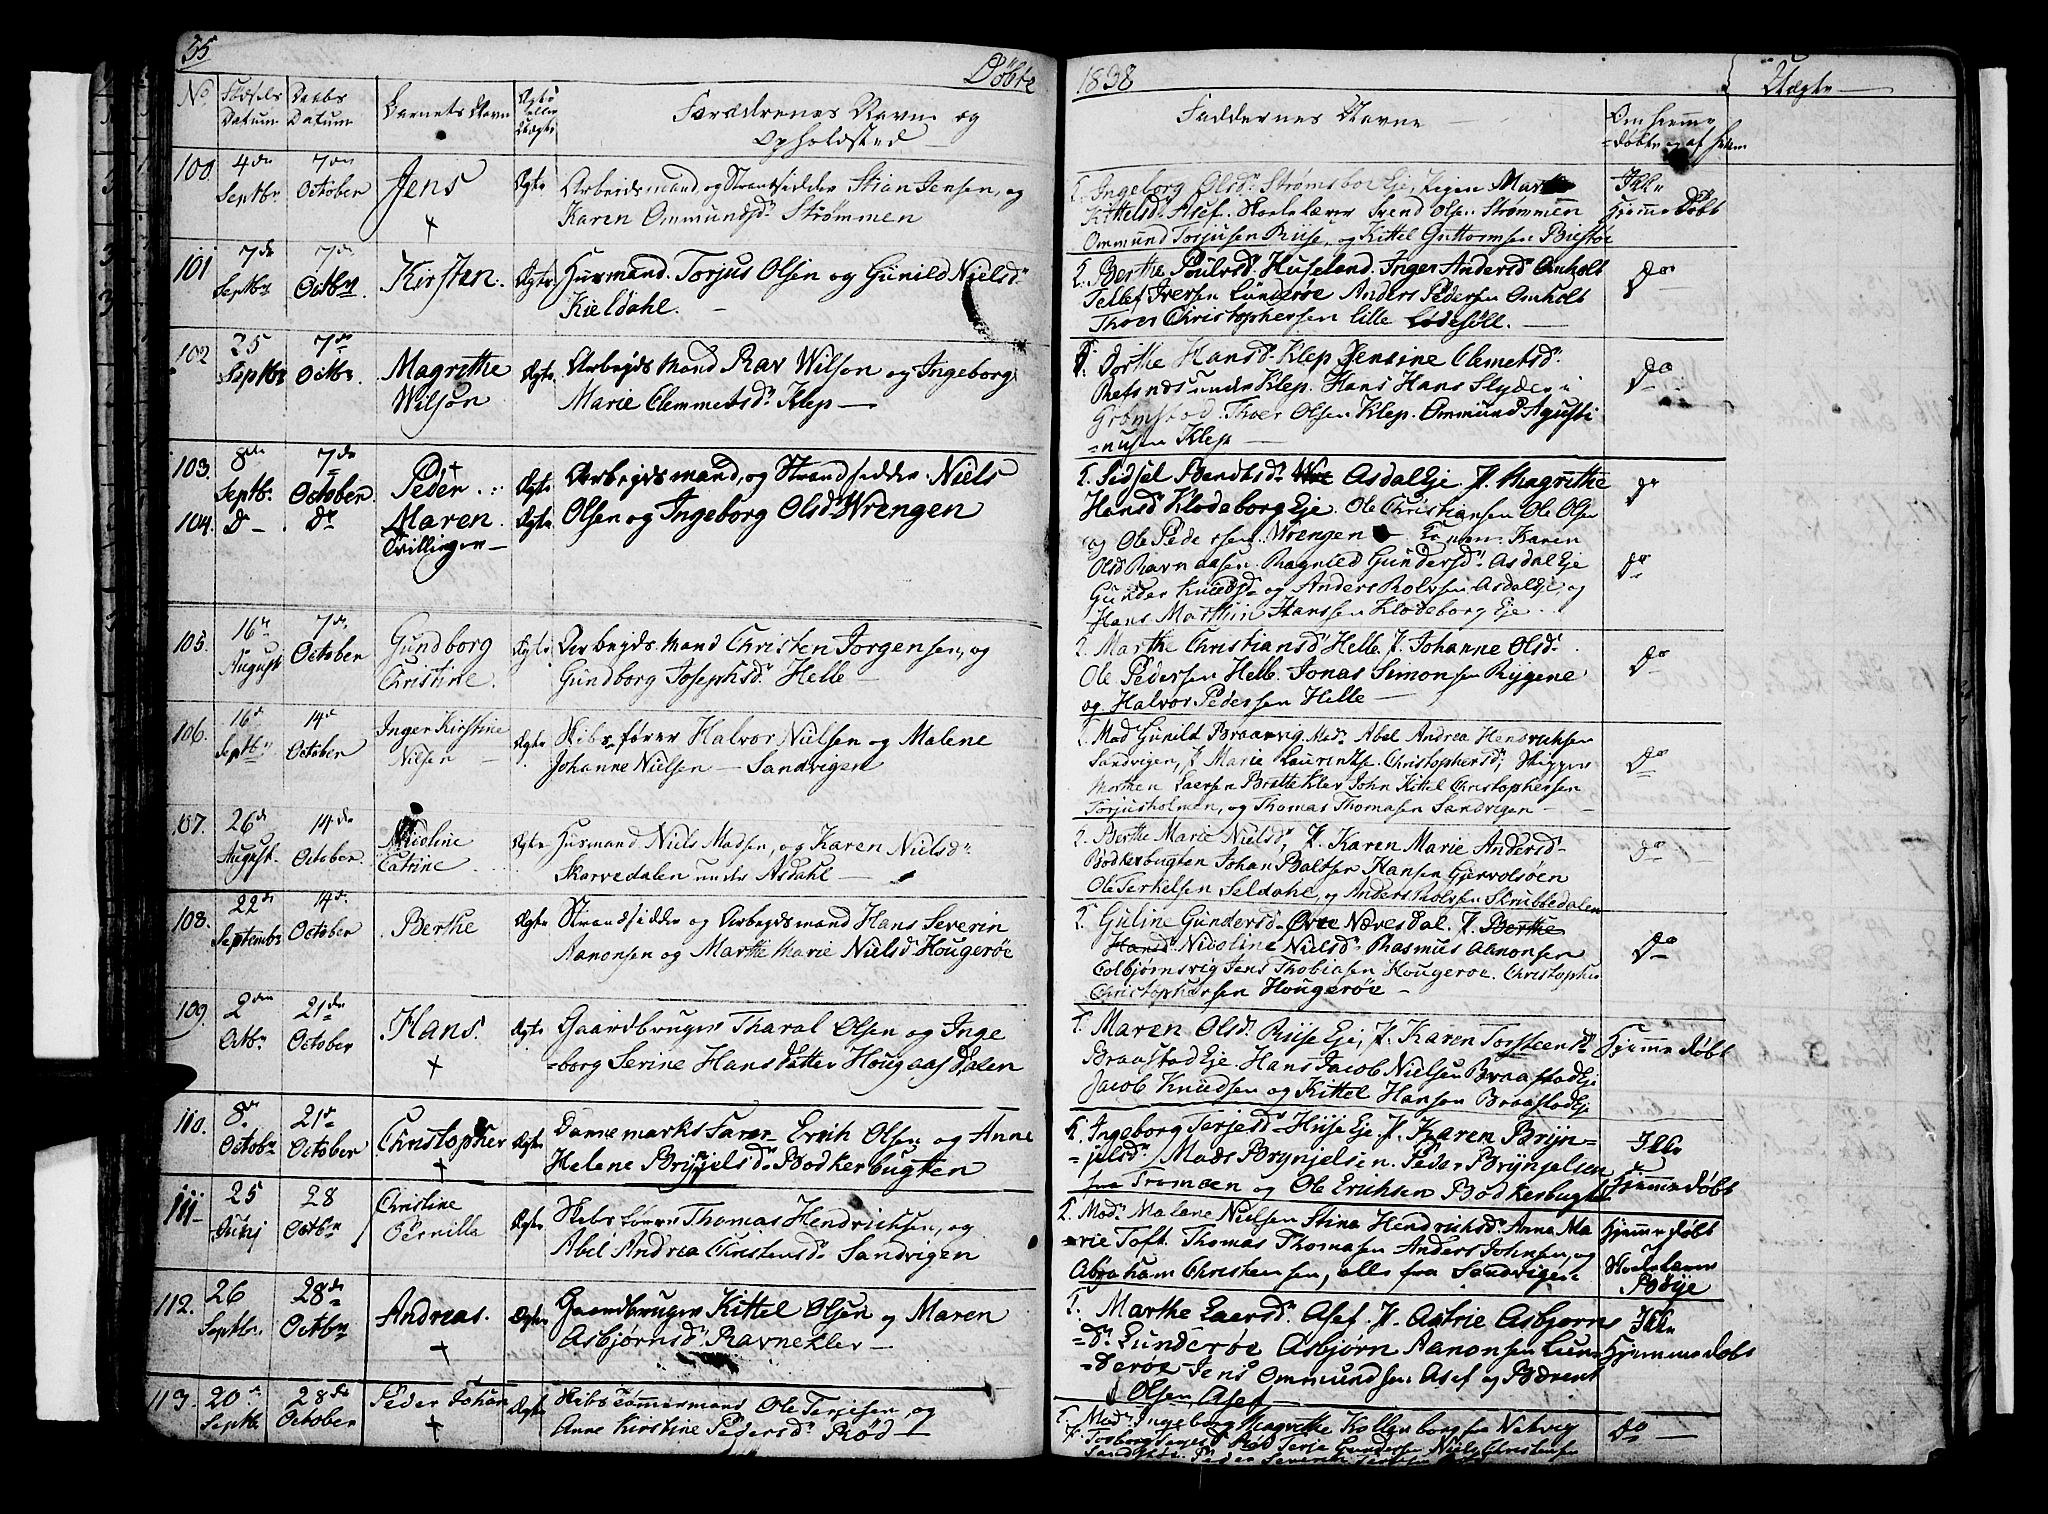 55
Døbte
No
Fødsels Datum
Daabs Datum
Barnets Navn
Ægte eller Uægte
Forældrenes Navn og
Opholdsted
100.
4de Septbr
7de October
Jens
+
Ægte
Arbeidsmand, og Strandsidder Stian Jensen, og
Karen Ommundsd. Strømmen
101
7de Septbr
7de Octbr.
Kirsten.
Ægte
Huusmand. Torjus Olsen og Gunild Nielsd.
Kieldahl.
102
25 Septbr
7de Octbr
Magrethe
Wilson
Ægte
Arbeyds Mand Rav Wilson og Ingeborg
Marie Clemmetsd. Klep
103.
8de Septbr.
7de October
+
Peder
Ægte
Arbeydsmand, og Strandsidder Niels
104.
D
Do
Maren.
Tvillinger
Ægte
Olsen og Ingeborg Olsd. Wrengen
105.
16de August
7de October
Gundborg
Christine.
Ægte
Arbeyds Mand Christen Jorgensen, og
Gundborg Josephsd. Helle
106.
16de Septbr
14de October
Inger Kirstine
Nilsen
Ægte
Skibsfører Halvor Nielsen og Malene
Johanne Nielsen Sandvigen
107.
26de August.
14de October.
Nicoline
Catrine
Ægte
Huusmand Niels Madsen, og Karen Nielsd.
Skarvedalen under Asdahl
108.
22de Septembr
14de October
Berthe
Ægte
Strandsidder og Arbeydsmand Hans Severin
Aanonsen og Marthe Marie Nielsd. Hougerøe
109.
2den Octbr
21de October
Hans.
+
Ægte
Gaardbruger Tharal Olsen og Inge
=borg Serine Hans Datter Hougaasdalen
110.
8de Octobr
21de October
Christopher
+
Ægte
Erich Olsen og Anne
Helene Brynjelsd. Bodkerbugten
111
25 July
28 Octbr
Christine
Pernille
Ægte
Skibsfører Thomas Hendrichsen, og
Abel Andrea Christensd. Sandvigen
112.
26 Septbr.
28de Octbr
Andreas.
+
Ægte
Gaardbruger Kittel Olsen og Maren
Asbjørnsd. Ravneklev
113.
20de Septbr.
28de October
Peder Johan
+
Ægte
Skibs Tømmermand Ole Terjesen, og
Anne Kirstine Pedersd. Rød
1838
Uægte
Faddernes Navne
Om hjemme
=døbte og af hvem
Ingeborg Olsd. Strømsboe Eje, Pigen Marthe
Kittelsd. Asef. Skolelærer Svend Olsen Strømmen
Ommund Torjusen Riise, og Kittel Guttormsen Biestøe
Ikke
Hjemme Døbt
Berthe Poulsd. Huseland. Inger Andersd. Omholt
Tellef Iversen Lunderøe Anders Pedersen Omholt
Thoer Christophersen lille Lødesøll.
Do
Dorthe Hansd. Klep Jensine Clemetsd.
Refsnes under Klep. Hans Hans Slyder i
Gromstad. Thoer Olsen Klep. Ommund Agusti
=nusen Klep
Do
Sidsel Bendtsd. Asdal Eje P. Magrethe
Hansd. Klodeborg Eje. Ole Christiansen Ole Olsen
og Ole Pedersen Wrengen. Karen
Olsd. Ravnaasen. Ragnild Gundersd. Asdal Eje
Gunder Knuds. og Anders Rolvsen Asdal Eje, og
Hans Marthin Hanssen Klodeborg Eje.
Do
Do
Marthe Christiansd. Helle P. Johanne Olsd.
Ole Pedersen Helle. Jonas Simonsen Rygene
og Halvor Pedersen Helle
Do
Mad Gunild Braarvig Mad. Abel Andrea Hendrichsen
Sandvigen, P. Marie Laurentze Christophersd, Skipper
Morthen Laersen Bratteklev John Kittel Christophersen
Torjusholmen, og Thomas Thomasen Sandvigen
Do
Berthe Marie Nielsd, P. Karen Marie Andersd.
Bodkerbugten Johan Baltser Hansen Gjervolsøen
Ole Terkelsen Seldahl, og Anders Rolvsen Skrubbedalen
Do
Guline Gundersd. Øvre Nævesdal. P. Berthe
Hansd. Nicoline Nielsd. Rasmus Aanonsen
Colbjørnsvig Jens Thobiasen Hougerøe. Christopher
Christophersen Hougerøe
Do
Maren Olsd. Riise Eje, P. Karen Torsteensd.
Braastad Eje. Hans Jacob Nielsen Braastad Eje
Jacob Knudsen og Kittel Hansen Braastad Eje
Hjemme Døbt
Ingeborg Terjesd. Huse Eje. P. Karen Bryn=
=jelsd. Mads Brynjelsen. Peder Brynjelsen
fra Tromøen og Ole Erichsen Bodkerbugten
Ikke
Hjemme Døbt
Mad. Malene Nielsen Stina Hendrichsd. Anna Ma
=rie Toft. Thomas Thomasen Anders Johnsen, og
Abraham Christensen, alle fra Sandvigen
Hjemme Døbt
af
Skolelærer
Bøye
Marthe Laersd. Asef. P. Astrie Asbjørns
=d. Lunderøe Asbjørn Aanonsen Lun=
=derøe Jens Ommundsen Asef og Bærent
Olsen Asef
Ikke
Hjemmedøbt
Mad. Ingeborg Magrethe fra Natvig
Torborg Terjesd. Rød Terje Gundersen Niels Christensen
Peder Severin
Do